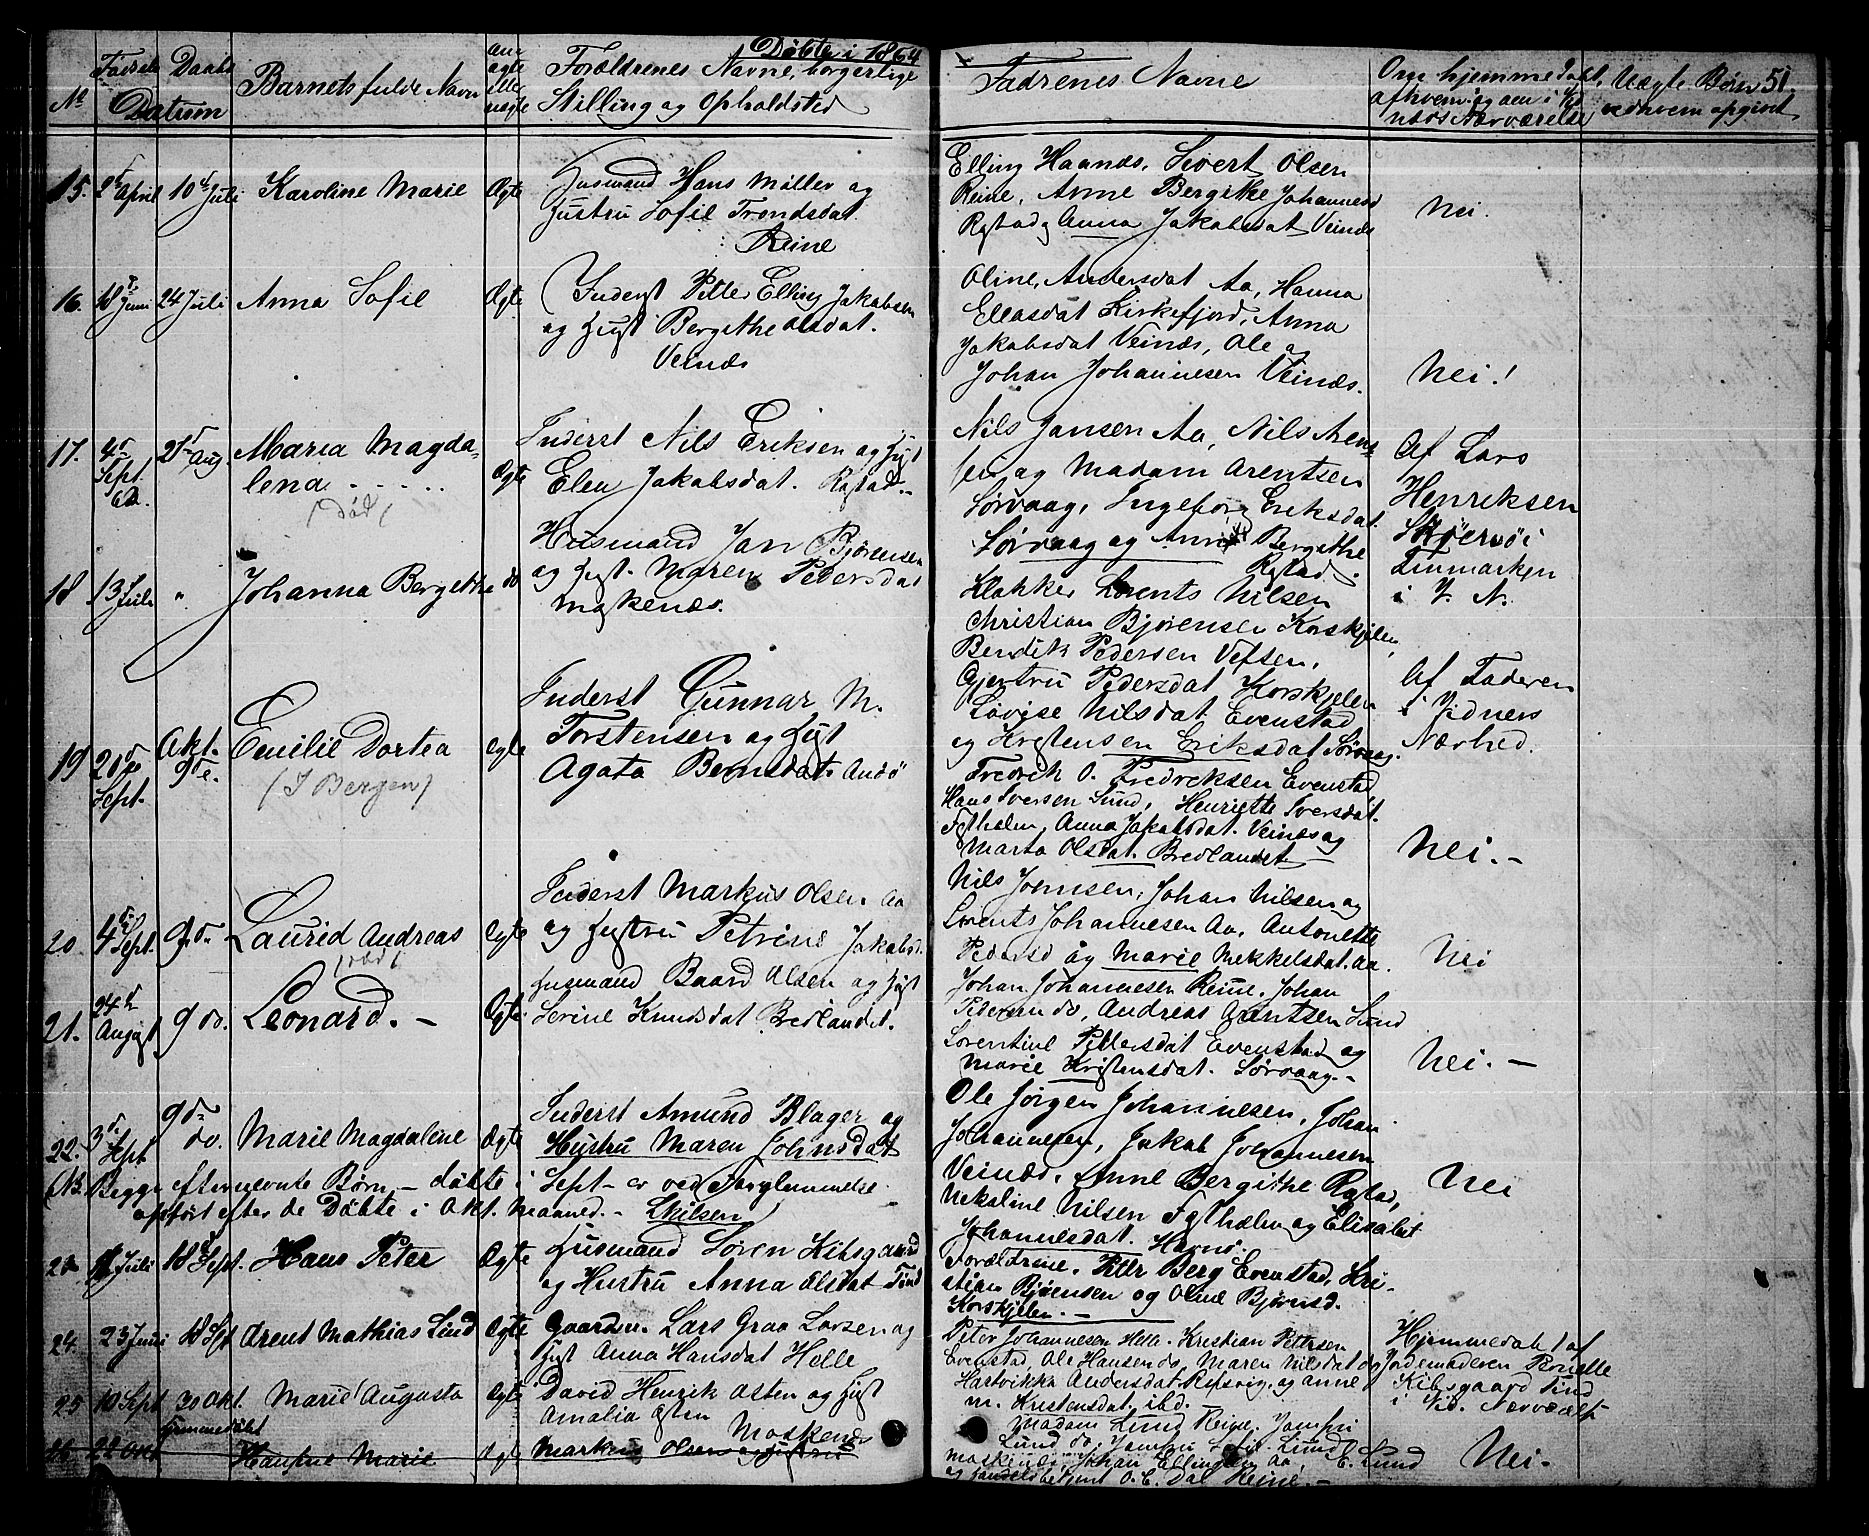 Døbte i 1864
51.
No
Fødsels Daabs
Datum
Barnets fulde Navn
om ægte eller uægte
Forældrenes Navne, borgerlige
Stilling og Opholdsted
Fadrenes Navne
Om hjemmedøbt,
af hvem og
Nærværelse
Uægte Børn
ved hvem opgivet
15. 2d April 10d Juli Karoline Marie Ægte
Husmand Hans Møller og
Hustru Sofie Trondsdat.
Reine
Elling Haanes, Sivert Olsen
Reine, Anne Bergitke Johannesd
Rystad og Anna Jakobsdat Veinæs
Nei.
16. 18d Juni 24 Juli Anna Sofie Ægte
Inderst Petter Elling Jakobsen
og Hust Bergithe Olsdat.
Veinæs
Oline Andersdat Aa, Hanna
Eliasdat Kirkefjord, Anna
Jakobsdat Veinæs, Ole og
Johan Johannesen Veinæs.
Nei!
17. 4d Sept. 62. 21d Aug. Maria Magda-
lena
(død)
Ægte
Inderst Nils Eriksen og Hust
Elen Jakobsdat. Rystad.
Nils Jansen Aa, Nils Aren-
sen og Madam Arentsen
Sørvaag, Ingeborg Eriksdat.
Sørvaag og Anne Bergithe
Rystad.
Af Lars
Henriksen
Skjervøi
Finmarken
i V. N.
18 13 Juli " Johanna Bergethe do
Husmand Jan Bjørensen
og Hust. Maren Pedersdat
Moskenæs.
Klokker Lorents Nilsen
Christian Bjørensen Korshjelen,
Bendik Pedersen Vefsen,
Gjertru Pedersdat Korshjelen
Lovise Nilsdat Evenstad
og Kristensen Eriksdat Sørvaag.
Af Faderen
i Vidners
Nærhed.
19 20de Sept. Okt. 9de Emilie Dortea
(I Bergen)
Ægte
Inderst Gunnar M.
Torstensen og Hust
Agata Berntsdat. Andø
Fredrik O. Fredriksen Evenstad
Hans Iversen Sund, Henriette Iversdat.
Festhælen, Anna Jakobsdat. Veinæs og
Marta Olsdat. Bredlandet
Nei.-
20. 4d Sept. 9de Laurid Andreas
(død)
Ægte
Inderst Markus Olsen Aa
og Hustru Petrine Jakobsd.
Nils Johnsen, Johan Nilsen og
Lorents Johannesen Aa, Antonette
Pedersd og Marie Mekkelsdat. Aa.
Nei
21. 24de August 9 do. Leonard. - Ægte
Husmand Baard Olsen og Hust
Serine Knudsdat Bredlandet.
Johan Johannesen Reine, Johan
Pedersen do, Andreas Arntsen Sund
Lorentine Pettersdat Evenstad og
Marie Kristensdat. Sørvaag.-
Nei.-
22. 3d Sept 9de do. Marie Magdaline Ægte
Inderst Amund Blager og
Hustru Maren Johnsdat
Ole Jørgen Johannesen, Johan
Johannesen, Jakob Johannesen
Veinæs, Anne Bergithe Rystad,
Nekoline Nilsen Festhælen og Elisabet
Johannesdat. Havnø.
Nei
(NB. Begge efternevnte Børn - døbte i Sept - er ved Forglemmelse
opført efter de Døbte i Okt. Maaned. - LNilsen
23 11 Juli 18d Sept. Hans Peter Ægte
Husmand Søren Kibsgaard
og Hustru Anna Olsdat Tind
Forældrene, Petter Berg Evenstad, Kri-
stian Bjørensen og Oline Bjørnsd.
Korshjelen. -
24. 23 Juni 18 Sept Arent Mathias Lind Ægte
Gaardm. Lars Graa Larsen og
Hust Anna Hansdat Helle
Peter Johannesen Helle, Kristian Pettersen
Evenstad, Ole Hansen do, Maren Nilsdat do,
Hartvikka Andersdat Refsvig, og Anne
M. Kristensdat. ibd. -
Hjemmedøbt af
Jordemoderen Ronelle
Kibsgaard Tind
i Vid. Nærværelse
25 10 Sept 30 Okt. Marie Augusta Ægte
Hjemmedøbt
David Henrik Østen og Hust
Amalia Østen
Moskenæs
Madam Lund Reine, Jomfru
Lund do, Jomfru Sofie Lund
Moskenæs, Johan Ellingsen Aa, E. Lund
og Handelsbetjent O. C. Dal Reine. -
Nei.
26 22 Okt Hansine Marie Ægte Markus Olsen og Hustru